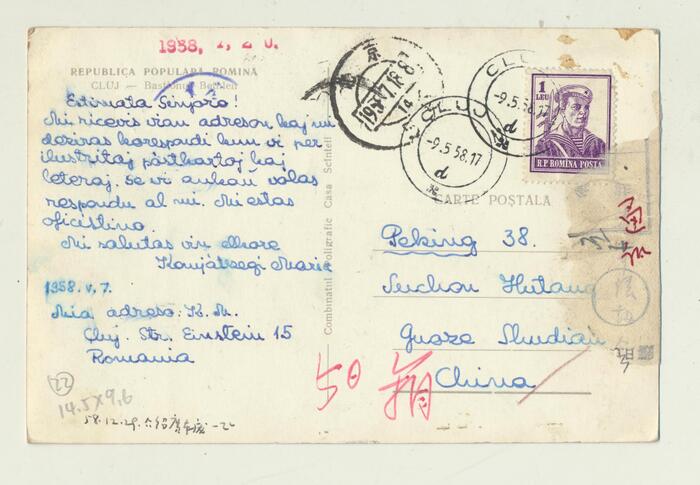 1958. 1, 20.
REPUBLICA POPULARĂ ROMÎNĂ
CLUJ — Bastionul Bethlen
Estimata Sinjoro!
Mi ricevis vian adreson kaj mi
deziras korespondi kun vi per
ilustritaj postkartoj kaj
leteroj, se vi ankaŭ volas
respondu al mi. Mi estas
oficistino.
Mi salutas vin elkore
1958. V. 7.
Mia adreso: K. M.
Cluj. Str. Einstein 15
Romania
Combinatul Poligrafic Casa Scînteii
CLUJ
-9.5.58.17
d
CLUJ
-9.5.58.17
d
1 LEU
R.P. ROMINA POSTA
CARTE POȘTALĂ
Peking 38.
Suchou Hutang
Guoze Shudian
China
京
14
50
22
14.5X9.6
58.12.29.